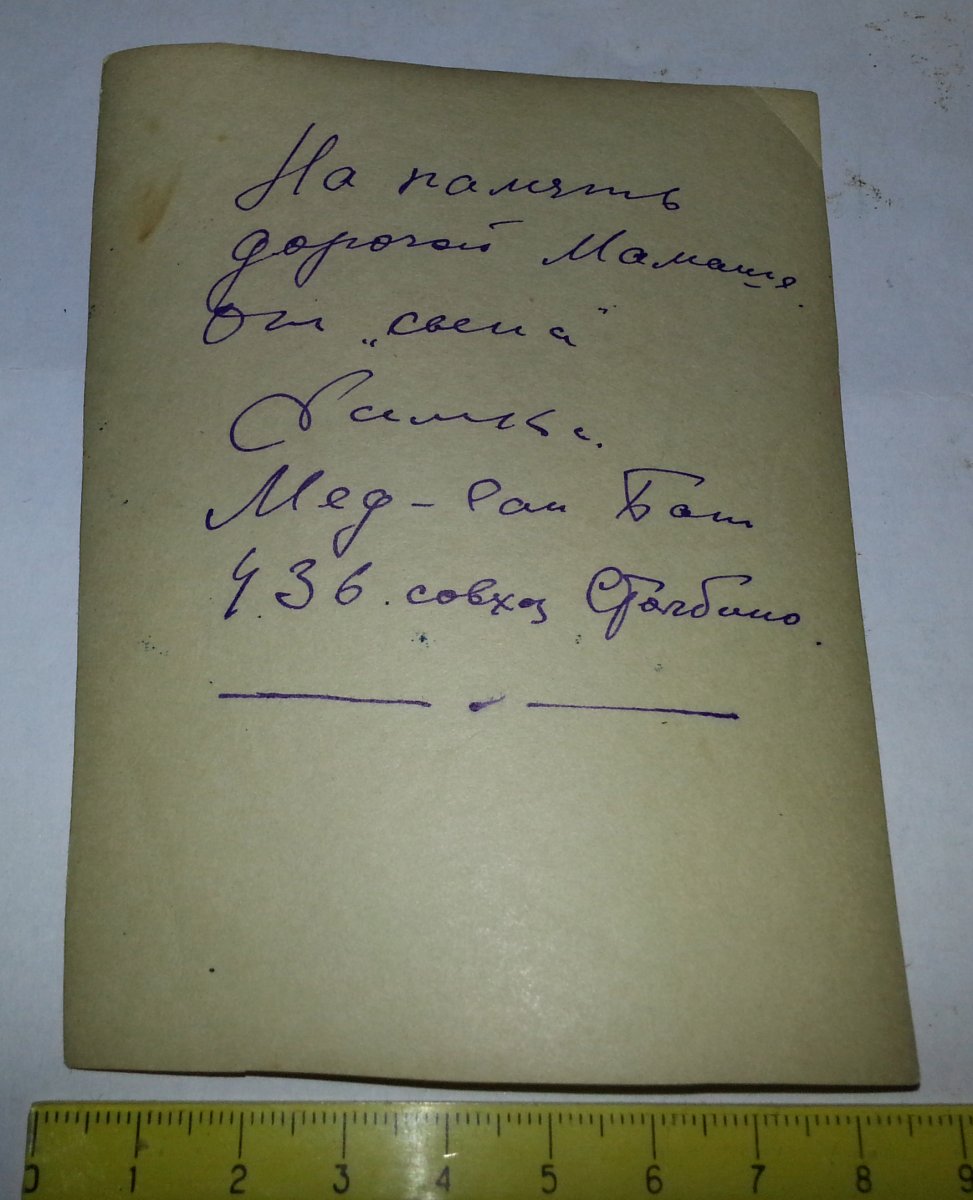 На память
дорогой Мамаше.
От „свена"
Мед-сан Бат
436. совхоз
0 1 2 3 4 5 6 7 8 9